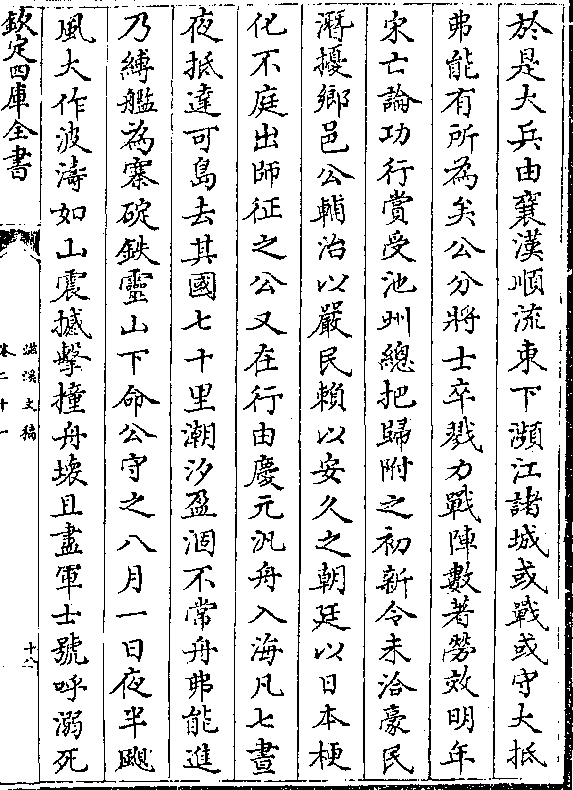 於是大兵由襄漢順流東下瀕江諸城或戰或守大抵
弗能有所為矣公分將士卒戮力戰陣數著勞效明年
宋亡論功行賞受池州總把歸附之初新令未洽豪民
潛擾鄉邑公輔治以嚴民賴以安久之朝廷以日本梗
化不庭出師征之公又在行由慶元汎舟入海凡七晝
夜抵達可島去其國七十里潮汐盈涸不常舟弗能進
乃縛艦為寨碇鉄靈山下命公守之八月一日夜半颶
風大作波濤如山震撼擊撞舟壊且盡軍士號呼溺死
欽定四庫全書
滋溪文稿
卷二十一
十六